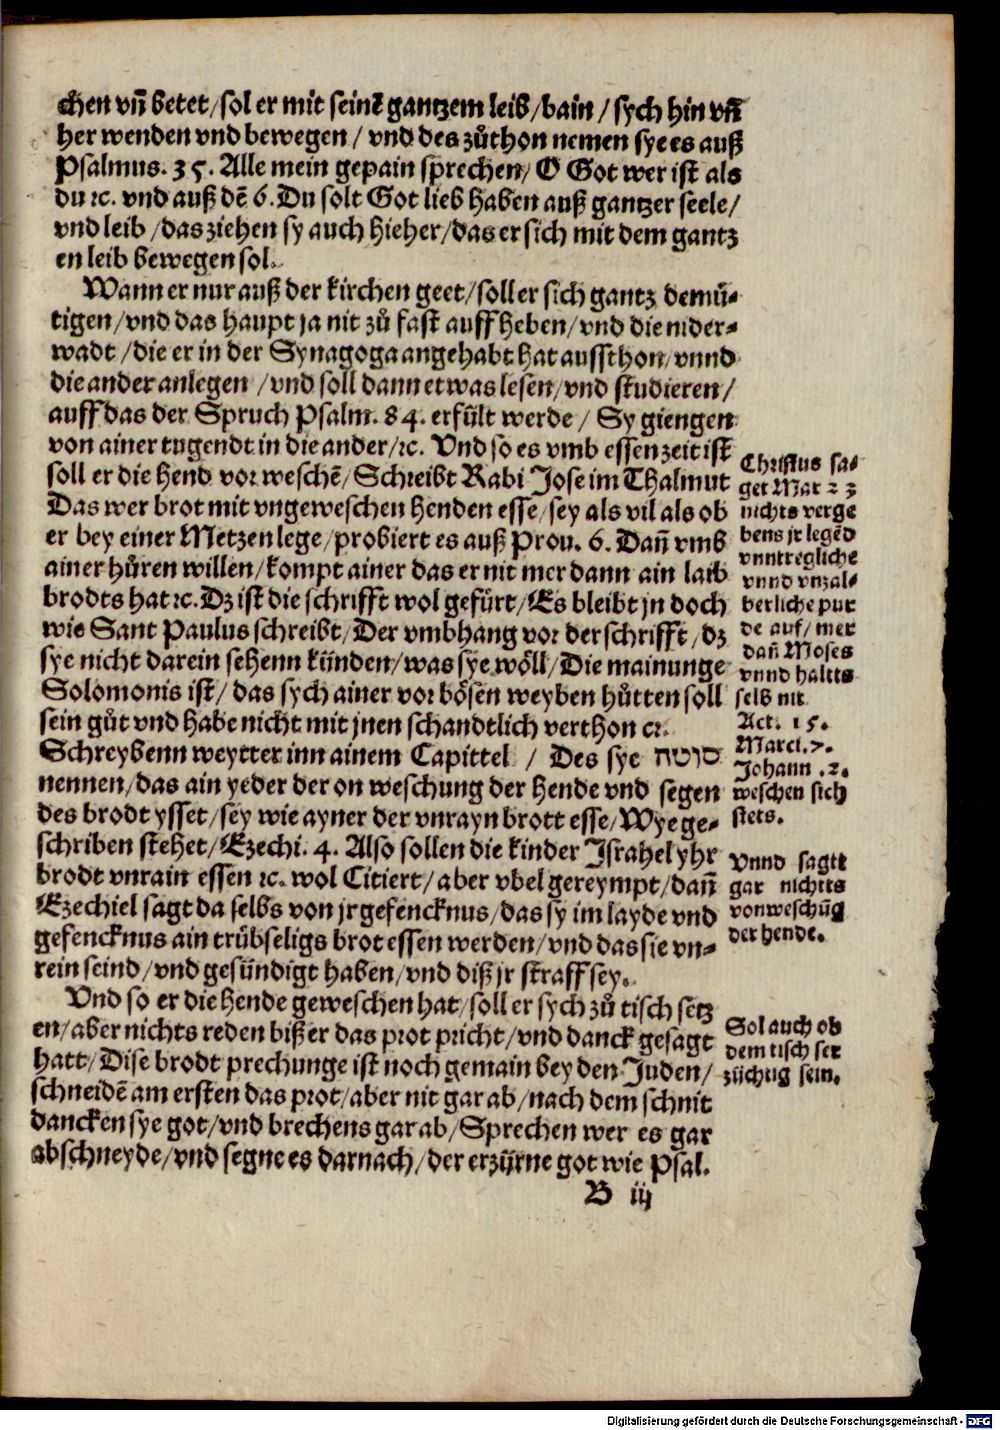 chen vñ betet/sol er mit seinē gantzem leib/bain/sych hin vñ
her wenden vnd bewegen/vnd des zůthon nemen sye es auß
Psalmus. 35. Alle mein gepain sprechen/O Got wer ist als
du ꝛc. vnd auß dē 6. Du solt Got lieb haben auß gantzer seele/
vnd leib/das ziehen sy auch hieher/das er sich mit dem gantz
en leib bewegen sol.
Wann er nur auß der kirchen geet/soll er sich gantz demü⸗
tigen/vnd das haupt ja nit zů fast auff heben/vnd die nider⸗
wadt/die er in der Synagoga angehabt hat aussthon/vnnd
die ander anlegen/vnd soll dann etwas lesen/vnd studieren/
auff das der Spruch Psalm. 84. erfült werde/Sy giengen
von ainer tugendt in die ander/ꝛc. Vnd so es vmb essen zeit ist
soll er die hend vor weschē/Schreibt Rabi Jose im Thalmut
Das wer brot mit vngeweschen henden esse/sey als vil als ob
er bey einer Metzen lege/probiert es auß Prou. 6. Dañ vmb
ainer hůren willen/kompt ainer das er nit mer dann ain laib
brodts hat ꝛc. Dz ist die schrifft wol gefürt/Es bleibt jn doch
wie Sant Paulus schreibt/Der vmbhang vor der schrifft/dz
sye nicht darein sehenn künden/was sye wöll/Die mainunge
Solomonis ist/das sych ainer vor bösen weyben hůtten soll
sein gůt vnd habe nicht mit jnen schandtlich verthon ꝛc.
Schreybenn weytter inn ainem Capittel/Des sye סוטה
nennen/das ain yeder der on weschung der hende vnd segen
des brodt ysset/sey wie ayner der vnrayn brott esse/Wye ge⸗
schriben stehet/Ezechi. 4. Also sollen die kinder Jsrahel yhr
brodt vnrain essen ꝛc. wol Citiert/aber vbel gereympt/dañ
Ezechiel sagt da selbs von jr gefencknus/das sy im layde vnd
gefencknus ain trübseligs brot essen werden/vnd das sie vn⸗
rein seind/vnd gesündigt haben/vnd diß jr straff sey.
Vnd so er die hende geweschen hat/soll er sych zů tisch setz
en/aber nichts reden biß er das prot pricht/vnd danck gesagt
hatt/Dise brodt prechunge ist noch gemain bey den Juden/
schneidē am ersten das prot/aber nit gar ab/nach dem schnit
dancken sye got/vnd brechens gar ab/Sprechen wer es gar
abschneyde/vnd segne es darnach/der erzürne got wie Psal.
B iij
Christus sa⸗
get Mat 23
nichts verge
bens jr legēd
vnntregliche
vnnd vnzal⸗
berliche pur
de auf/mer
dañ Moses
vnnd haltts
selb nit
Act. 15.
Marci. 7.
Johann. 2.
weschen sich
stets.
Vnnd sagtt
gar nichtts
von weschūg
der hende.
Sol auch ob
dem tisch ser
züchtig sein.
Digitalisierung gefördert durch die Deutsche Forschungsgemeinschaft - DFG